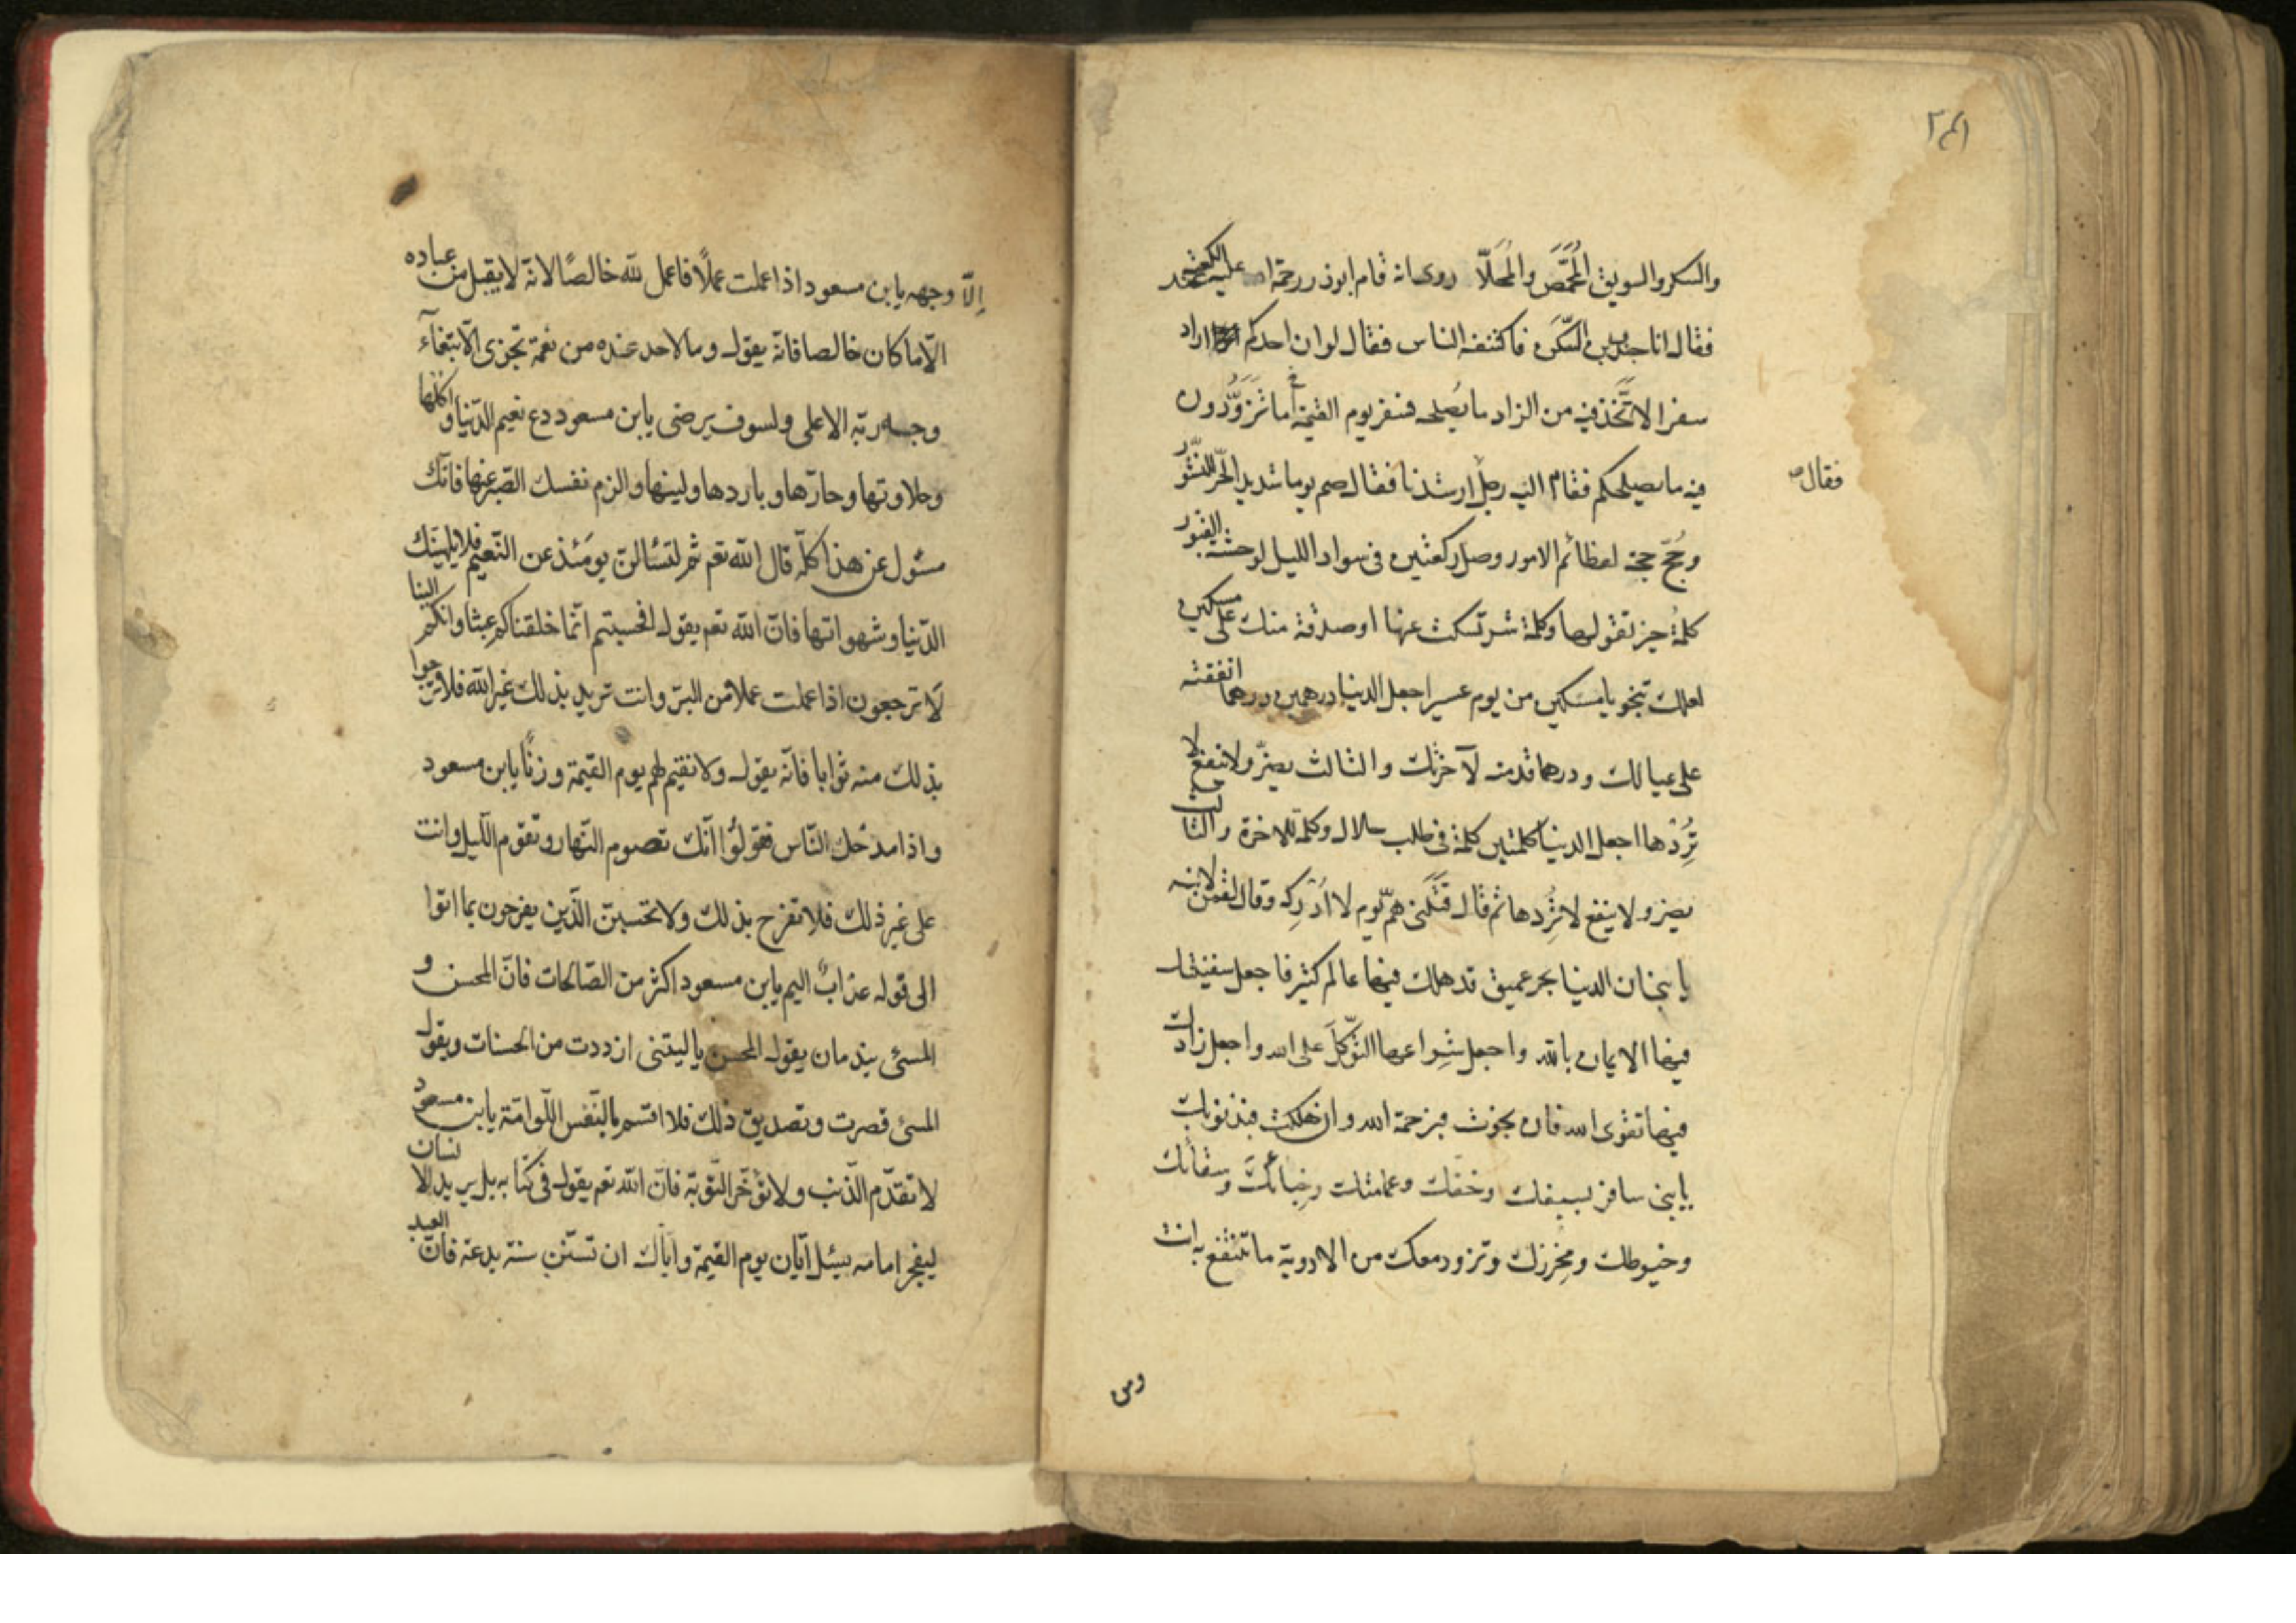 ٢٤١
والسكر والسويق المُحَمَّص والمُحَلّا روى انه قام ابوذر رحمة الله عليه عند الكعبة
فقال انا جندب بن السَّكَن فاكتنفه الناس فقال لو ان احدكم اراد
سفرا لاتَّخذ فيه من الزاد ما يُصلحه فسفر يوم القيمة أما تَزَوَّدُون
فيه ما يصلحكم فقام اليه رجل ارشدنا فقال صم يوما شديد الحرّ للنشور
فقال
وحُجّ حجة لعظائم الامور وصل ركعتين فى سواد الليل لوحشة القبور
كلمةُ خير تقولها وكلمة شر تسكت عنها او صدقة منك على مسكين
لعلك تنجو يا مسكين من يوم عسير اجعل الدنيا درهمين درهما انفقته
على عيالك ودرهما قدمته لآخرتك والثالث يضرّ ولا ينفع لا
تُرِدْها اجعل الدنيا كلمتين كلمة فى طلب حلال وكلمة للاخرة والثالث
يضر ولا ينفع لا تُرِدها ثم قال قَتَلَنى همّ يوم لا اُدْرِكه وقال لقمن لابنه
يا بنى ان الدنيا بحر عميق قد هلك فيها عالم كثير فاجعل سفينتك
فيها الايمان بالله واجعل شِراعها التوكّلَ على الله واجعل زادك
فيها تقوى الله فان نجوت فبرحمة الله وان هلكت فبذنوبك
يا بنى سافر بسيفك وخفّك وعمامتك وخِبائكَ وسِقائك
وخيوطك ومِخْرزك وتزود معك من الادوية ما تنتفع به انت
ومن
اِلّا وجهه يابن مسعود اذا عملت عملًا فاعمل لله خالصًا لانه لا يقبل من عباده
الّا ما كان خالصا فانّه يقول وما لاحد عنده من نعمة تجزى الّا ابتغآء
وجه ربّه الاعلى ولسوف يرضى يابن مسعود دع نعيم الدّنيا و اكلها
وحلاوتها وحارّها وباردها ولينها والزم نفسك الصّبر عنها فانّك
مسئول عن هذا كلّه قال الله تعم ثمّ لتسئالنّ يومَئذ عن النّعيم فلا يلهينّك
الدّنيا وشهواتها فانّ الله تعم يقول افحسبتم انّما خلقناكم عبثا وانكم الينا
لَا ترجعون اذا عملت عملا من البرّ وانت تريد بذلك غير الله فلا ترجوا
بذلك منه ثوابا فانّه يقول ولا نقيم لهم يوم القيمة وزنًا يابن مسعود
واذا مدحك النّاس فقولُوا انّك تصوم النّهار وتقوم اللّيل وانت
على غير ذلك فلا تفرح بذلك ولا تحسبنّ الّذين يفرحون بما اتوا
الى قوله عذابٌ اليم يابن مسعود اكثر من الصّالحات فانّ المحسن و
المسئ يندمان يقول المحسن ياليتنى ازددت من الحسنات ويقول
المسئ قصرت وتصديق ذلك فلا اقسم بالنّفس اللّوامة يابن مسعود
لا تقدّم الذّنب ولا تؤخّر التّوبة فانّ الله تعم يقول فى كتابه بل يريد الانسان
ليفجر امامه يسئل ايّان يوم القيمة وايّاك ان تستنّ سنة بدعة فانّ العبد